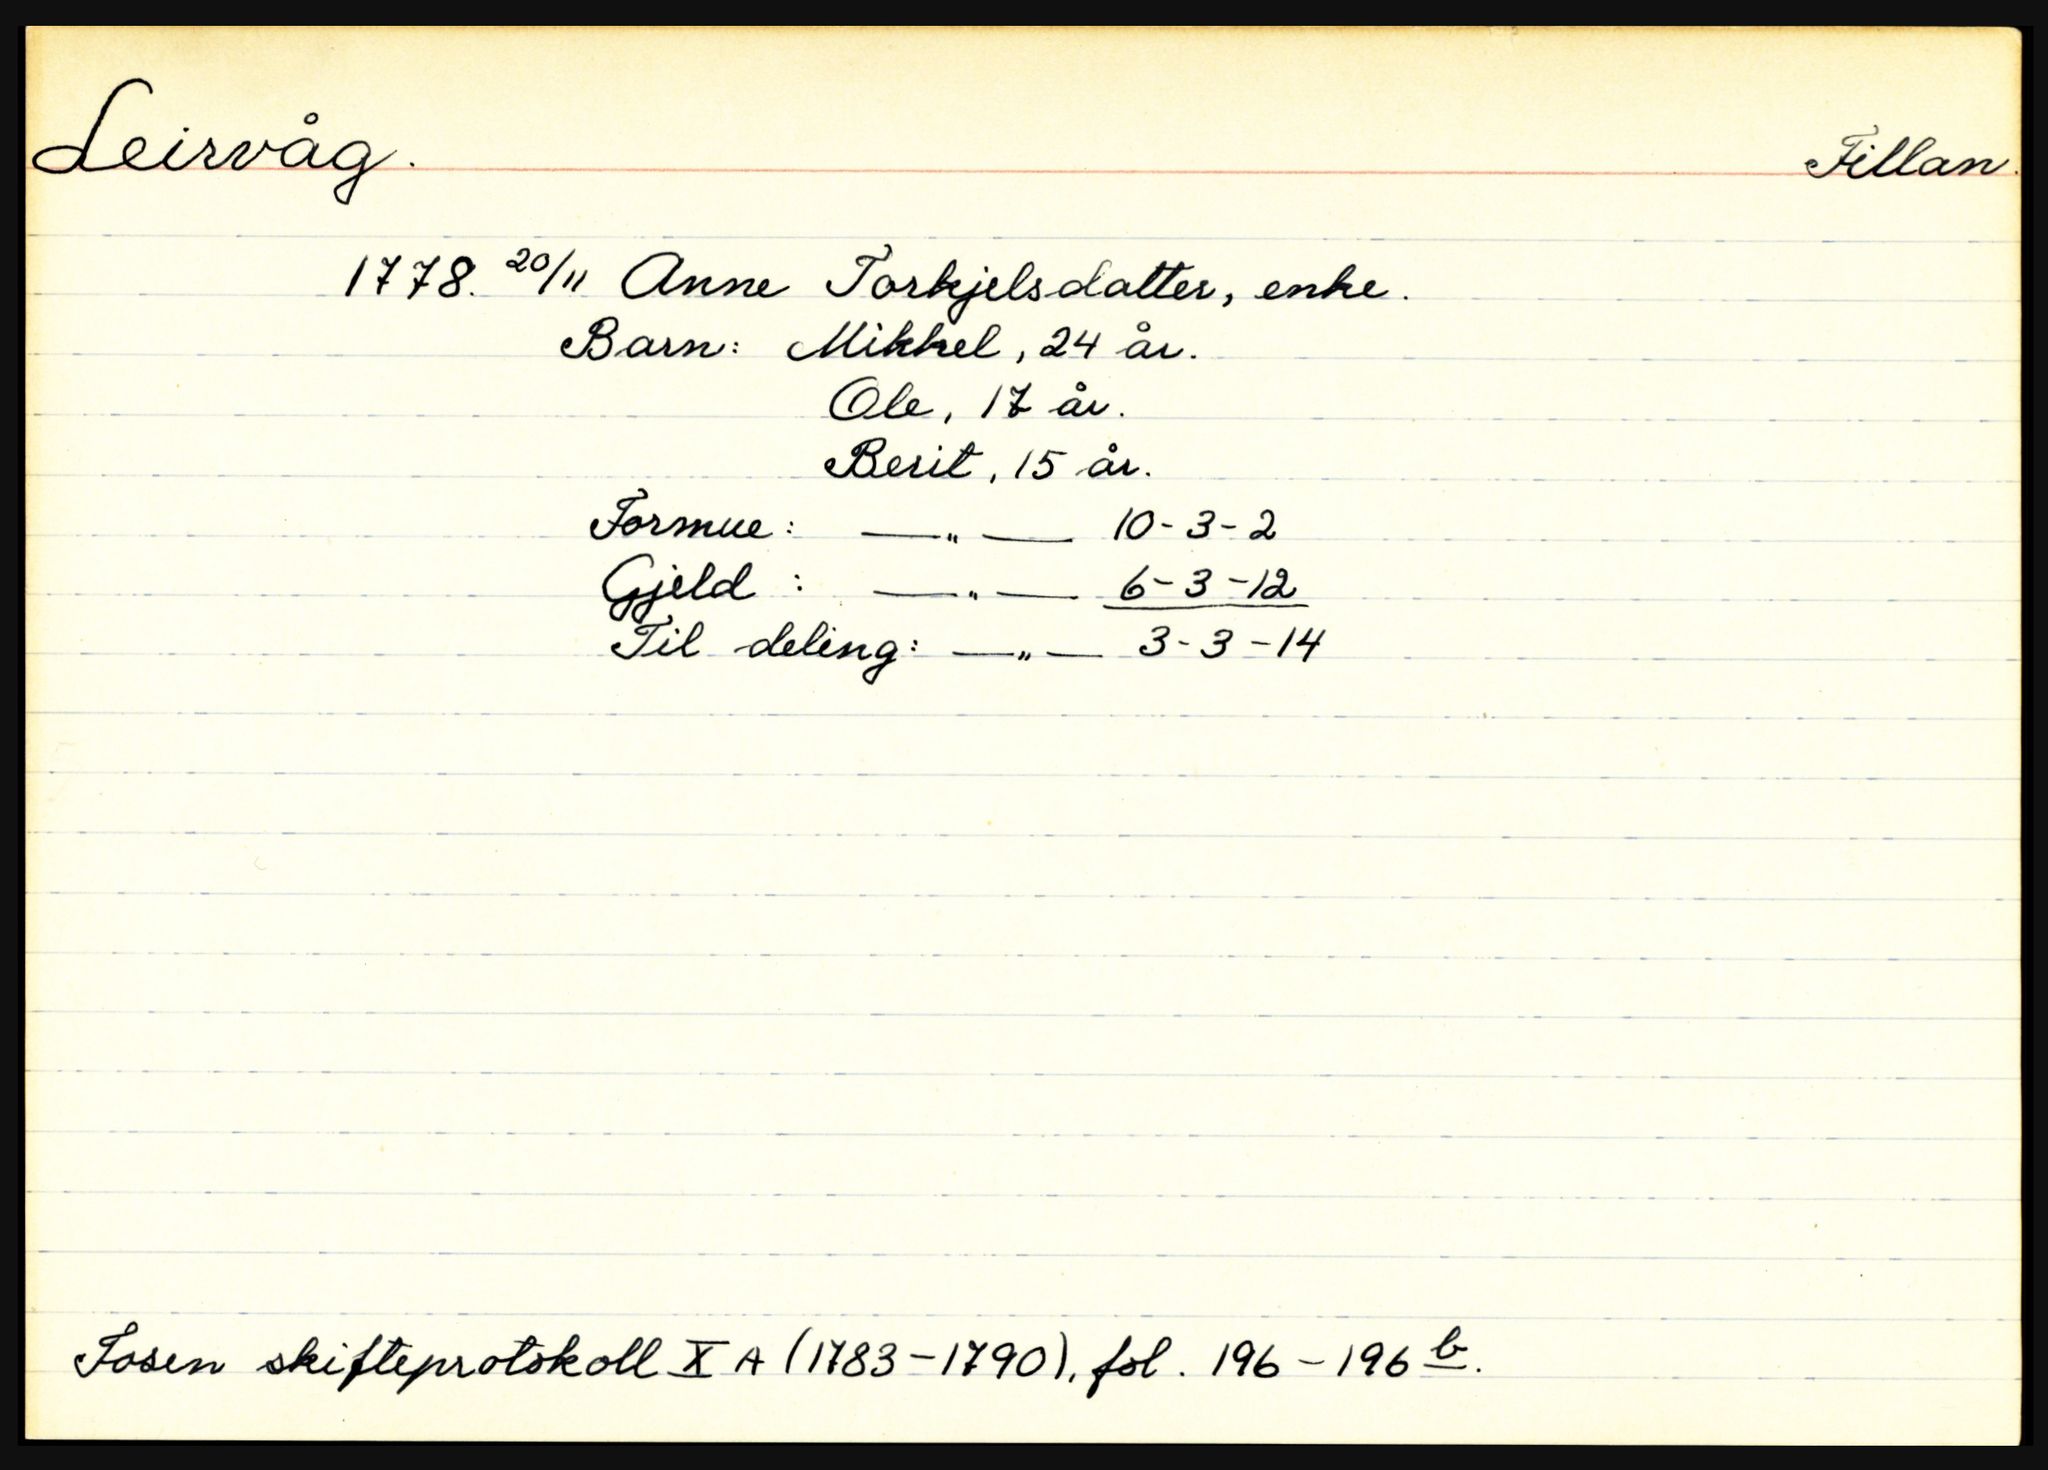 Leirvåg. Fillan.
1778. 20/11 Anne Torkjelsdatter, enke.
Barn: Mikkel, 24 år.
Ole, 17 år.
Berit, 15 år.
Formue: —„— 10-3-2
Gjeld : —„— 6-3-12
Til deling: —„— 3-3-14
Fosen skifteprotokoll X A (1783-1790), fol. 196-196 b.